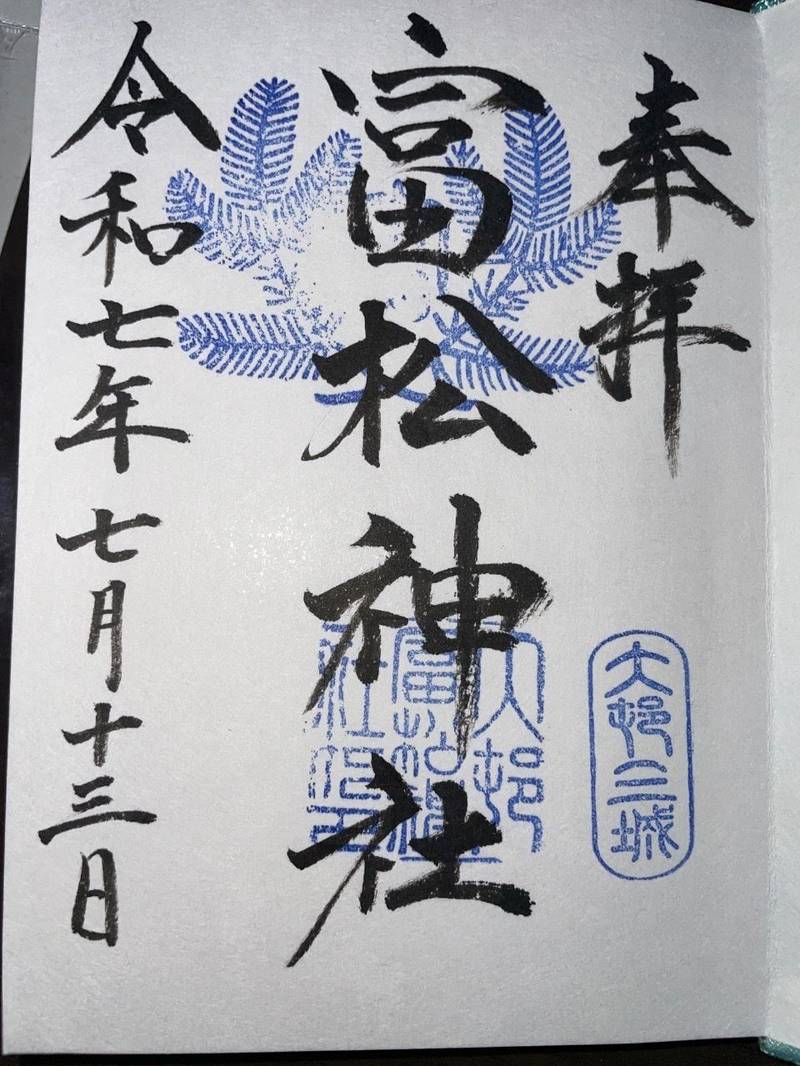 奉拝
大邨三城
富松神社
大邨
富松神
社印
令和七年七月十三日